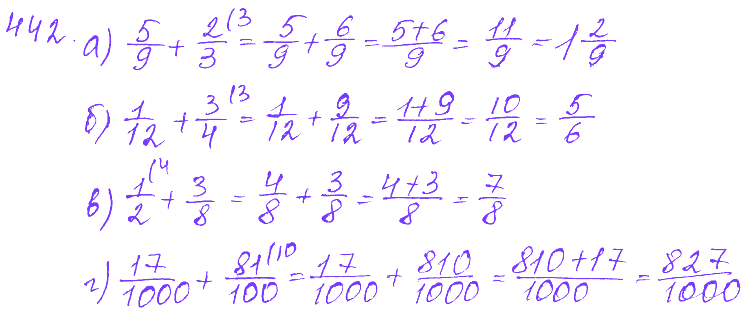 442. а) 5/9 + 2/3 (3 = 5/9 + 6/9 = 5+6/9 = 11/9 = 1 2/9
б) 1/12 + 3/4 (3 = 1/12 + 9/12 = 1+9/12 = 10/12 = 5/6
в) 1/2 (4 + 3/8 = 4/8 + 3/8 = 4+3/8 = 7/8
г) 17/1000 + 81/100 (10 = 17/1000 + 810/1000 = 810+17/1000 = 827/1000